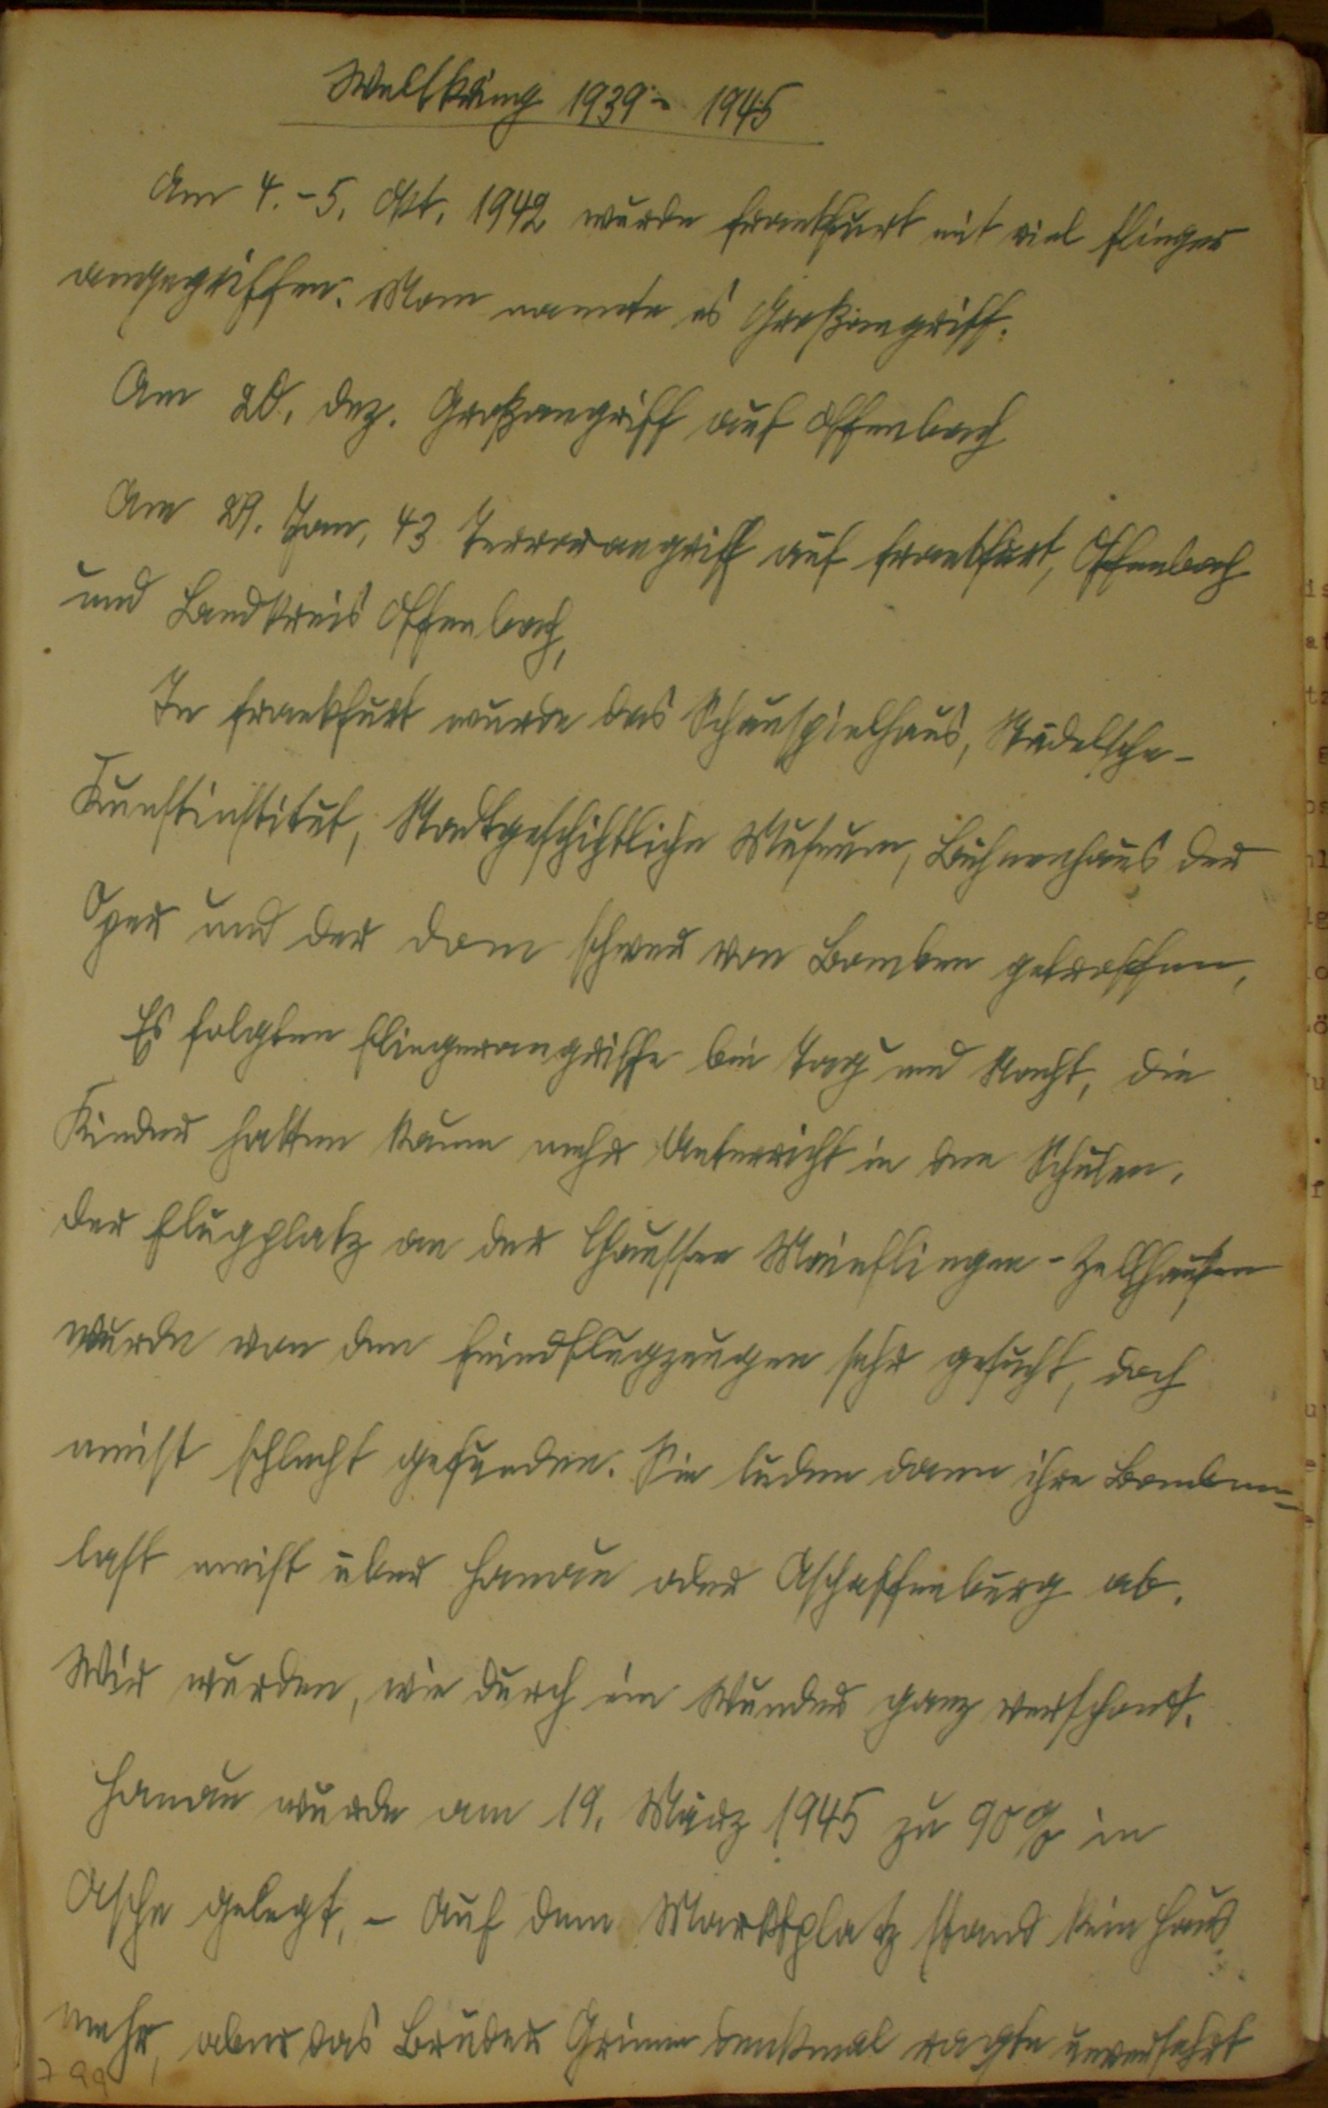 Weltkrieg 1939 - 1945
Am 4.-5. Okt. 1942 wurde Frankfurt mit viel Flieger
angegriffen. Man nannte es Großangriff.
Am 20. Dez. Großangriff auf Offenbach
Am 29. Jan. 43 Terrorangriff auf Frankfurt, Offenbach
und Landkreis Offenbach,
In Frankfurt wurde das Schauspielhaus, Städelsche-
Kunstinstitut, Stadtgeschichtliche Museum, Bühnenhaus der
Oper und der Dom schwer von Bomben getroffen,
Es folgten Fliegerangriffe bei Tag und Nacht, die
Kinder hatten kaum mehr Unterricht in den Schulen.
Der Flugplatz an der Chaussee Mainflingen-Zellhausen
wurde von den Feindflugzeugen sehr gesucht, doch
meist schlecht gefunden. Sie luden dann ihre Bomben=
last meist über Hanau oder Aschaffenburg ab.
Wir wurden, wie durch ein Wunder ganz verschont.
Hanau wurde am 19. März 1945 zu 90% in
Asche gelegt. - Auf dem Marktplatz stand kein Haus
mehr, aber das Brüder Grimm Denkmal ragte unversehrt